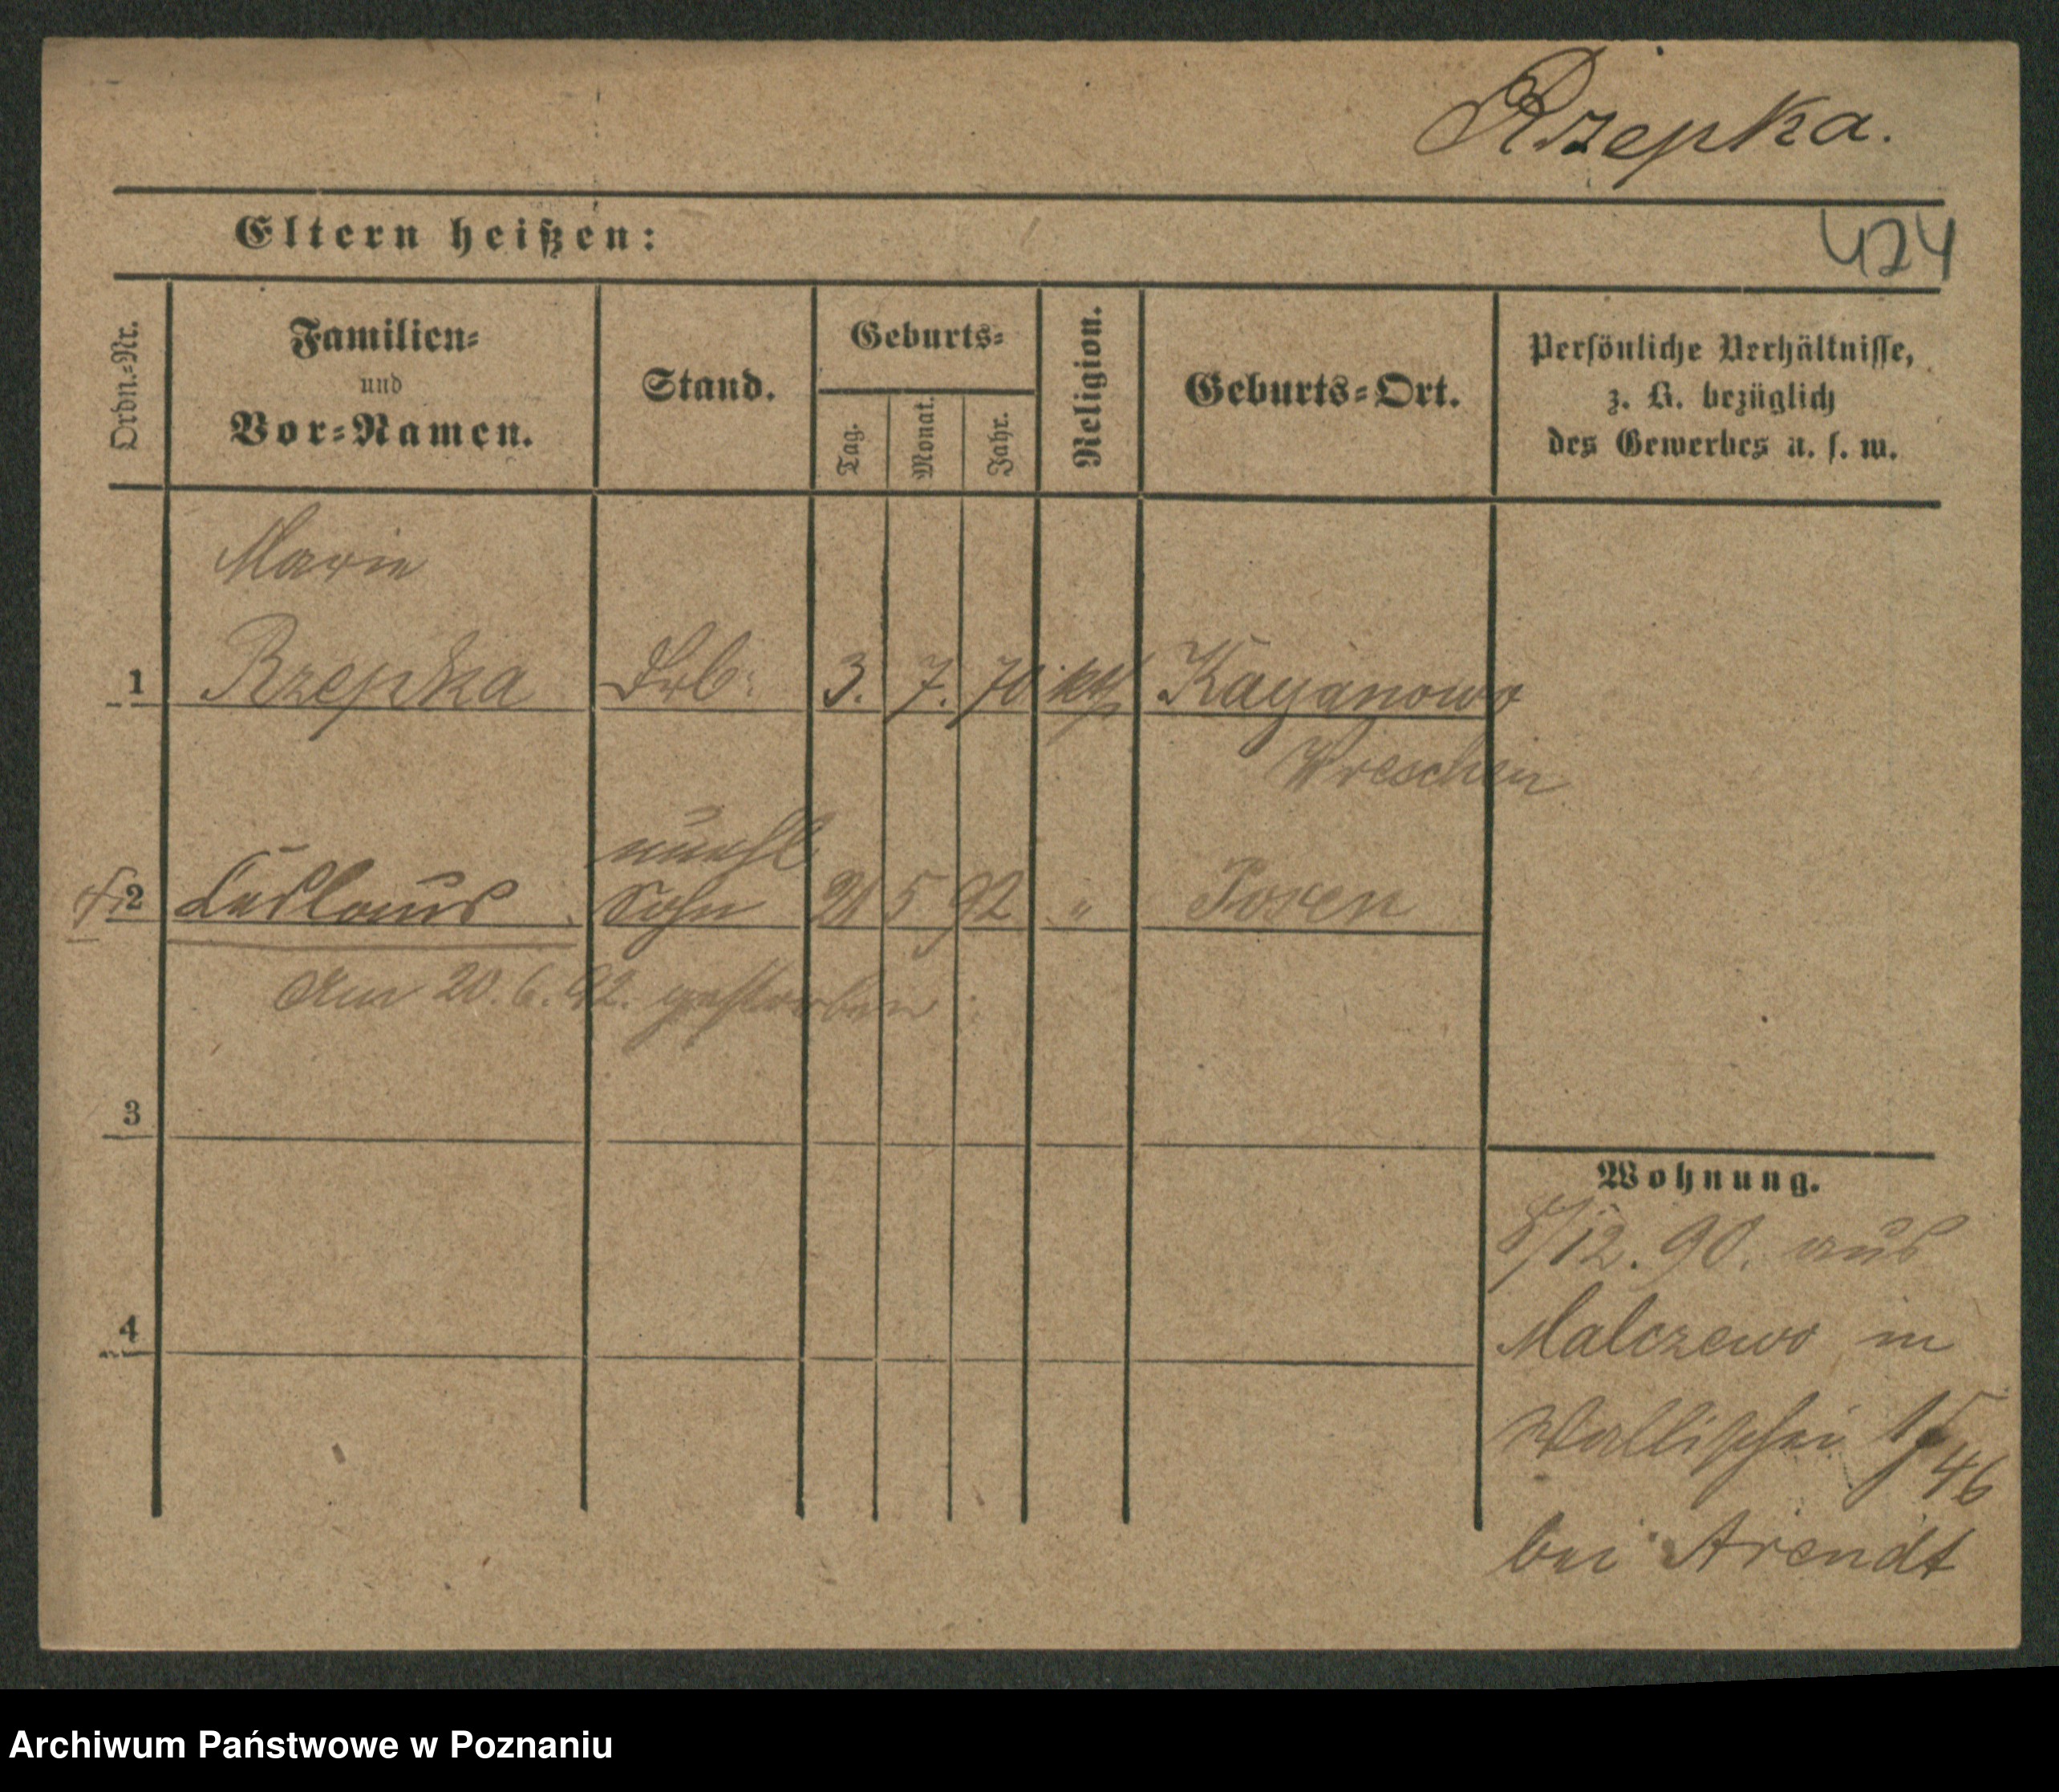 Rzepka.
Eltern heißen:
424
Ordn.-Nr.
Familien-
und
Vor-Namen.
Stand.
Geburts-
Tag.
Monat.
Jahr.
Religion.
Geburts-Ort.
Persönliche Verhältnisse,
z. B. bezüglich
des Gewerbes u. s. w.
Marie
1 Rzepka 3. 7. 70 kth Kayanowo
Wreschen
unehl
2 Ladislaus Sohn 21 5 92 " Posen
Am 20. 6. 92. gestorben
3
4
Wohnung.
8/12. 90. aus
Malczewo in
Wallischei
46
bei Arendt
Archiwum Państwowe w Poznaniu